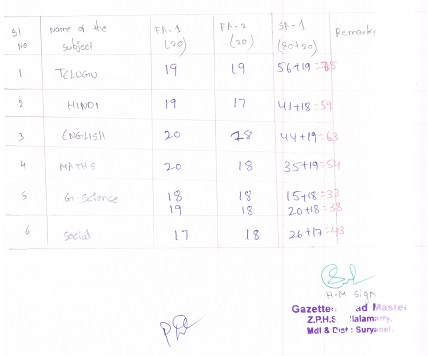 Sl NO Name of the subject FA-1 (20) FA-2 (20) SA-1 (80+20) Remarks
1 TELUGU 19 19 56+19=75
2 HINDI 19 17 41+18=59
3 ENGLISH 20 18 44+19=63
4 MATHS 20 18 35+19=54
5 G. Science 18 18 15+18=33
19 18 20+18=38
6 Social 17 18 26+17=43
H.M Sign
Gazette ad Master
Z.P.H.S
Mdl & Dist : Suryapet.